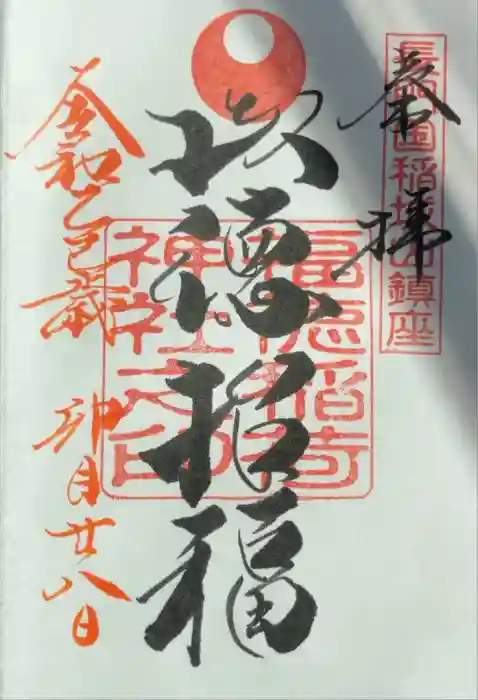 奉拝
長門国稲城山鎮座
以徳招福
福徳稲荷
神社之印
令和乙巳歳
卯月廿八日